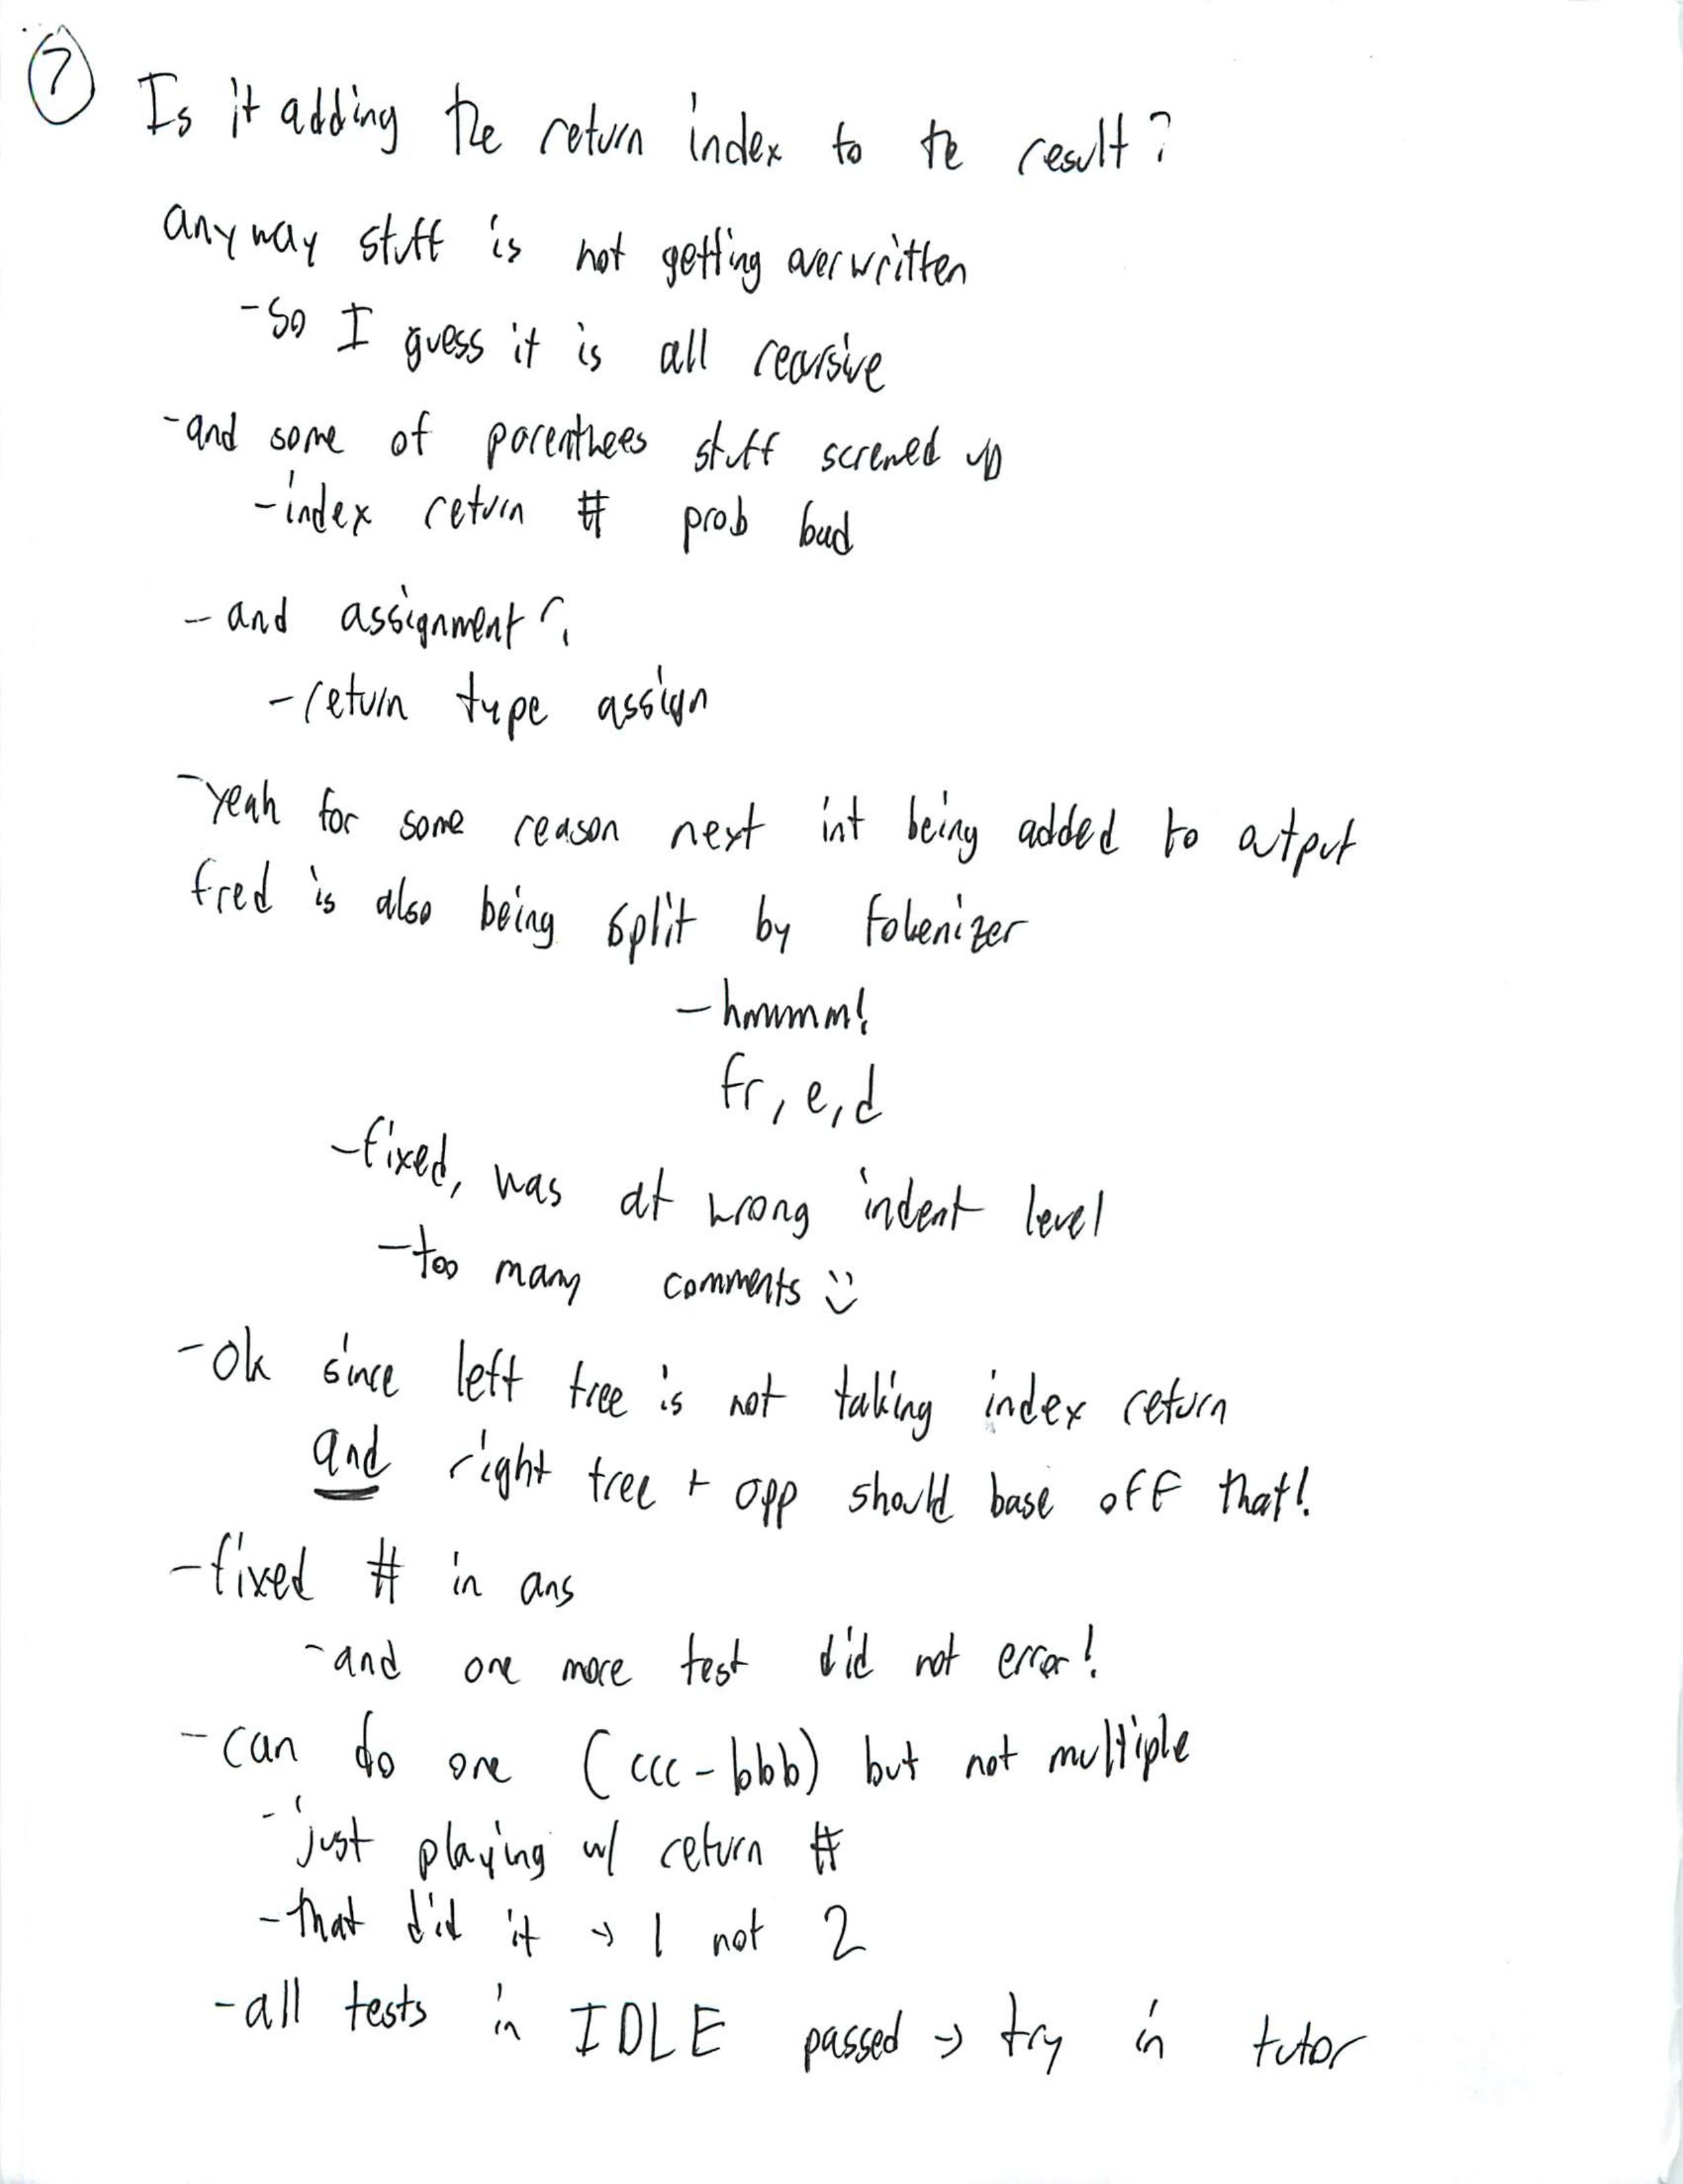 ?
Is it adding the return index to te result?
anyway stuff is not getting overwritten
- So I guess it is all recursive
- and some of parenthees stuff screwed up
- index return # prob bad
- and assignment?
- return type assign
- yeah for some reason next int being added to output
fred is also being split by tokenizer
- hmmmm!
fr, e, d
- fixed, was at wrong indent level
- too many comments :)
- Ok since left tree is not taking index return
and right tree + opp should base off that!
- fixed # in ans
- and one more test did not error!
- can do one (ccc - bbb) but not multiple
- just playing w/ return #
- that did it → 1 not 2
- all tests in IDLE passed → try in tutor